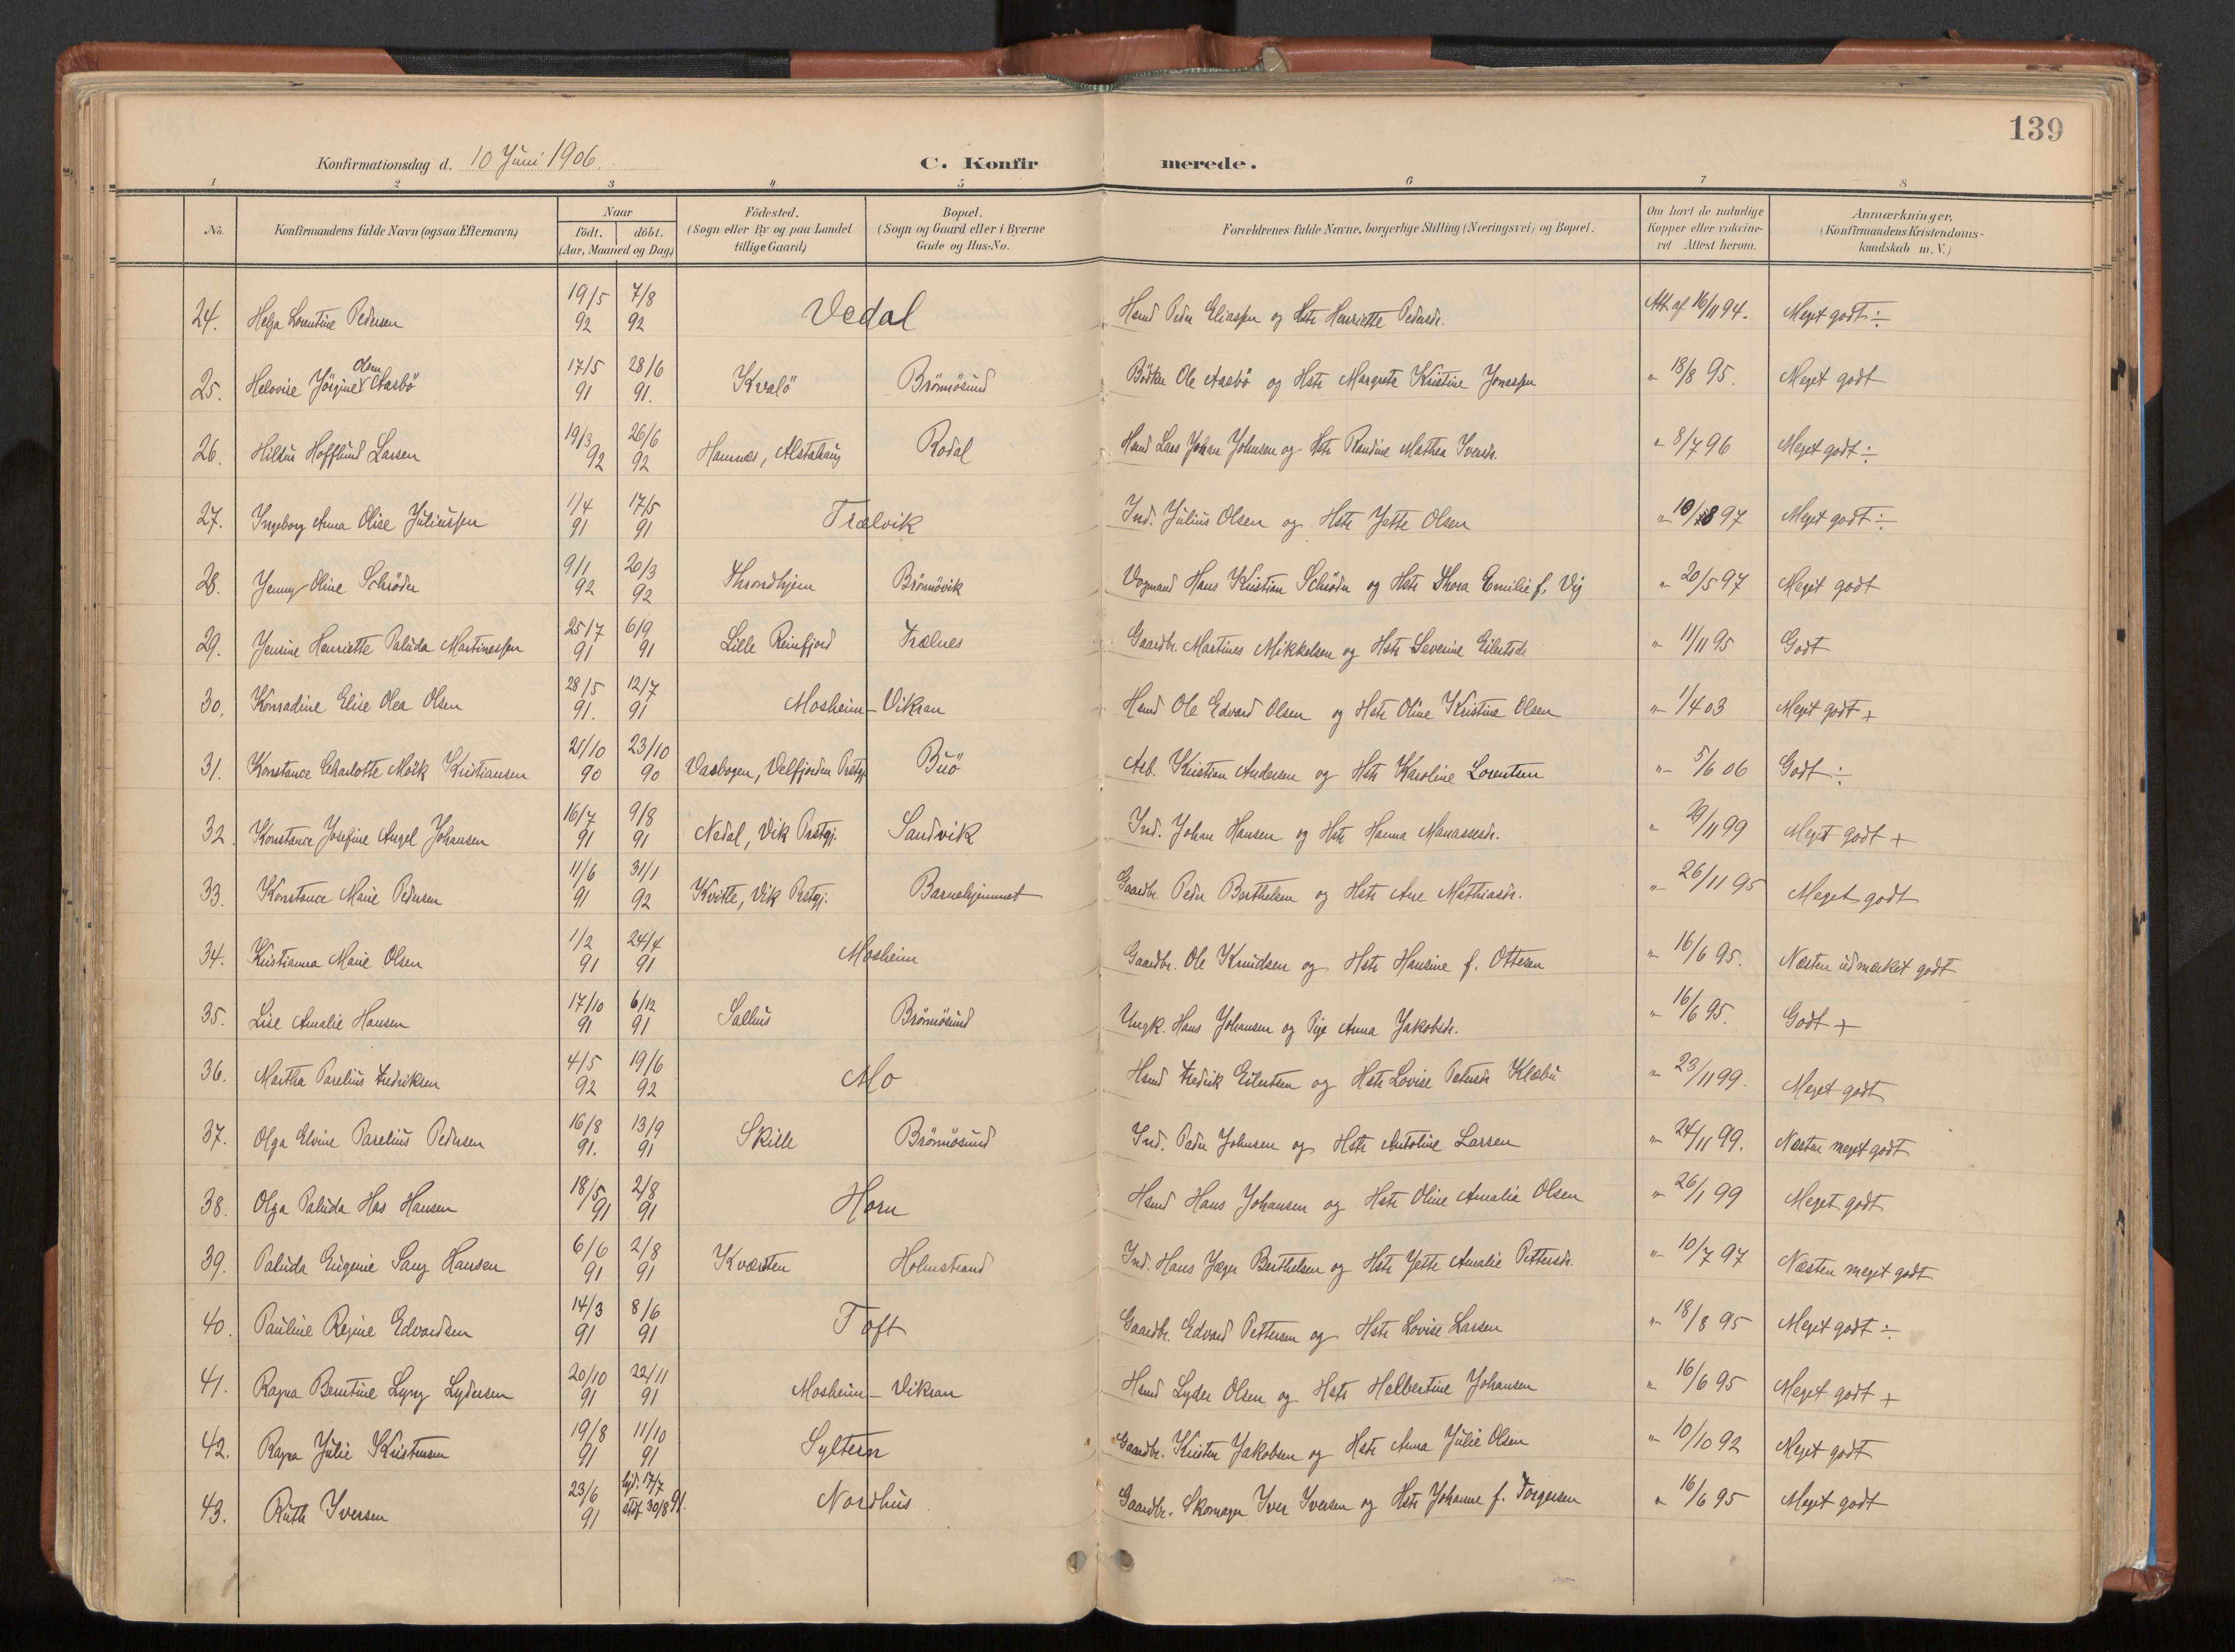 139
Konfirmationsdag d. 10 Juni 1906. C. Konfirmerede.
1 2 3 4 5 6 7 8
No. Konfirmandens fulde Navn (ogsaa Efternavn) Naar födt. döbt. (Aar, Maaned og Dag) Födested. (Sogn eller By og paa Landet tillige Gaard) Bopæl. (Sogn og Gaard eller i Byerne Gade og Hus-No. Forældrenes fulde Navne, borgerlige Stilling (Næringsvei) og Bopæl. Om havt de naturlige Kopper eller vakcineret Attest herom. Anmærkninger, (Konfirmandens Kristendomskundskab m. V.)
24. Helga Lorentine Pedersen 19/5 92 7/8 92 Vedal Hsmd Peder Eliassen og Hstr Henriette Pedersdr. Att. af 16/11 94. Meget godt ÷
25. Helovise Jörgine Olsen Aasbö 17/5 91 28/6 91. Kvalö Brönnösund Bödker Ole Aasbö og Hstr Margrete Kristine Jonassen " 18/8 95. Meget godt
26. Hildur Hofflund Larsen 19/3 92 26/6 92 Hamnes, Alstahaug Rodal Hsmd Lars Johan Johnsen og Hstr Randine Mathea Iversdr. " 8/7 96 Meget godt ÷
27. Ingeborg Anna Olise Juliussen 1/4 91 17/5 91 Trælvik Ind. Julius Olsen og Hstr Jette Olsen " 10/8 97 Meget godt ÷
28. Jenny Oline Schröder 9/1 92 20/3 92 Throndhjem Brönnövik Vognmand Hans Kristian Schröder og Hstr Thora Emilie f. Vig " 20/5 97 Meget godt
29. Jensine Henriette Paluda Martinessen 25/7 91 6/9 91 Lille Reinfjord Trælnes Gaardbr. Martines Mikkelsen og Hstr Severine Eilertsdr " 11/11 95 Godt
30. Konradine Elise Olea Olsen 28/5 91. 12/7 91 Mosheim - Vikran Hsmd Ole Edvard Olsen og Hstr Oline Kristine Olsen " 1/4 03 Meget godt +
31. Konstance Charlotte Mörk Kristiansen 21/10 90 23/10 90 Vasbogen, Velfjorden Prstgj. Buö Arb. Kristian Andersen og Hstr Karoline Lorentsen " 5/6 06 Godt ÷
32. Konstance Josefine Angel Johansen 16/7 91 9/8 91 Nedal, Vik Prstgj. Sandvik Ind. Johan Hansen og Hstr Hanna Manassesdr. " 29/11 99 Meget godt +
33. Konstance Marie Pedersen 11/6 91 31/1 92 Kvitle, Vik Prstgj. Barnehjemmet Gaardbr Peder Berthelsen og Hstr Ane Mathiasdr. " 26/11 95 Meget godt
34. Kristianna Marie Olsen 1/2 91 24/4 91 Mosheim Gaardbr. Ole Knudsen og Hstr Hansine f. Ottesen " 16/6 95. Næsten udmærket godt
35. Lise Amalie Hansen 17/10 91 6/12 91 Salhus Brönnösund Ungk. Hans Johansen og Pige Anna Jakobsdr. " 16/6 95. Godt +
36. Martha Parelius Fredriksen 4/5 92 19/6 92 Mo Hsmd Fredrik Eilertsen og Hstr Lovise Petersdr Klæbu " 23/11 99. Meget godt
37. Olga Elvine Parelius Pedersen 16/8 91. 13/9 91 Skille Brönnösund Ind. Peder Johnsen og Hstr Antoline Larsen " 24/11 99. Næsten meget godt
38. Olga Paluda Has Hansen 18/5 91 2/8 91 Horn Hsmd Hans Johansen og Hstr Oline Amalie Olsen " 26/1 99 Meget godt
39. Paluda Eugenie Sang Hansen 6/6 91 2/8 91 Kværsten Holmstrand Ind. Hans Jæger Berthelsen og Hstr Jette Amalie Pettersdr. " 10/7 97 Næsten meget godt
40. Pauline Regine Edvardsen 14/3 91 8/6 91 Toft Gaardbr. Edvard Pettersen og Hstr Lovise Larsen " 18/8 95 Meget godt ÷
41. Ragna Berntine Lyng Lydersen 20/10 91 22/11 91 Mosheim - Vikran Hsmd Lyder Olsen og Hstr Halbertine Johansen " 16/6 95 Meget godt +
42. Ragna Julie Kristensen 19/8 91 11/10 91 Syltern Gaardbr. Kristen Jakobsen og Hstr Anna Julie Olsen " 10/10 92 Meget godt
43. Ruth Iversen 23/6 91 hjd. 17/7 stdf. 30/8 91. Nordhus Gaardbr. Skomager Iver Iversen og Hstr Johanne f. Torgersen " 16/6 95 Meget godt